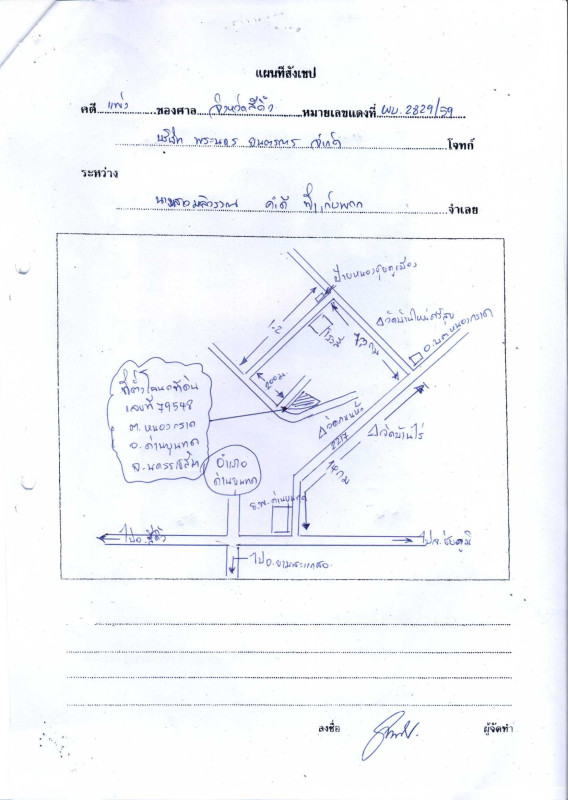 แผนที่สังเขป
คดี แพ่ง ของศาล จังหวัดสีคิ้ว หมายเลขแดงที่ ผบ. 2829/59
บริษัท พระนคร ยนตรการ จำกัด โจทก์
ระหว่าง
จำเลย
ป้ายหนองชุมคูเมือง
วัดบ้านใหม่ศรีสุข
อ.บ.ต.หนองกราด
1.2
7.3 กม
200 ม.
ที่ตั้งโฉนดที่ดิน
เลขที่ 79548
ต.หนองกราด
อ.ด่านขุนทด
จ.นครราชสีมา
อำเภอ
ด่านขุนทด
2217
วัดบ้านไร่
14 กม
ร.พ.ด่านขุนทด
ไปอ.สีคิ้ว
ไปจ.ชัยภูมิ
ไปอ.ขามสะแกแสง
ลงชื่อ
ผู้จัดทำ